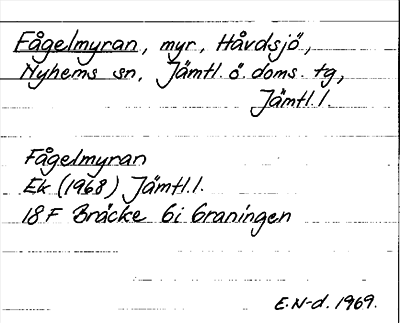 Fågelmyran, myr, Håvdsjö,
Nyhems sn, Jämtl. ö. doms. tg,
Jämtl. l.
Fågelmyran
Ek (1968) Jämtl. l.
18 F Bräcke 6i Graningen
E.N-d. 1969.